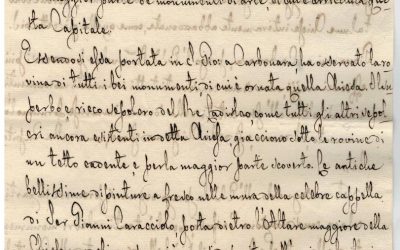 maggior parte de' monumenti di arte di cui è arricchita que-
sta Capitale.
Essendosi essa portata in S. Gio: a Carbonara, ha osservato la ro-
vina di tutti i bei monumenti di cui è ornata quella Chiesa. Il su-
perbo, e ricco sepolcro del Re Ladislao come tutti gli altri sepol-
cri ancora esistenti in detta Chiesa giacciono sotto le rovine di
un tetto cadente, e per la maggior parte scoverto. Le antiche
bellissime dipinture a fresco nelle mura della celebre cappella
di Ser Gianni Caracciolo, posta dietro l'Altare maggiore della